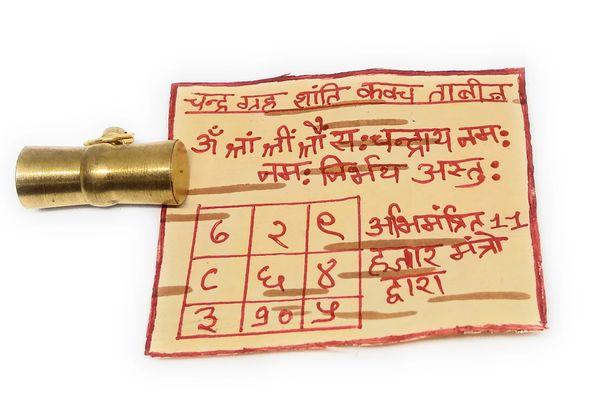 चन्द्र ग्रह शांति कवच ताबीज
ॐ श्रां श्रीं श्रौं सः चन्द्राय नमः
नमः निर्भय अस्तुः
७ २ ९
८ ६ ४
३ १० ५
अभिमंत्रित 1-1
हजार मंत्रो
द्वारा